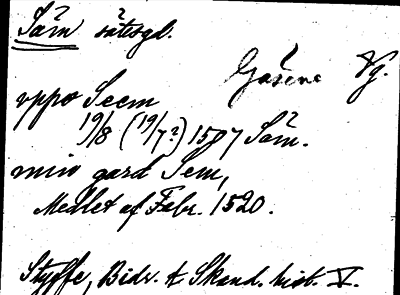 Säm sätesgd.
Gäsene Vg.
uppo Seem
19/8 (19/7?) 1507 Säm.
min gard Sem,
Medlet af Febr. 1520.
Styffe, Bidr. t Skand. hist. V.